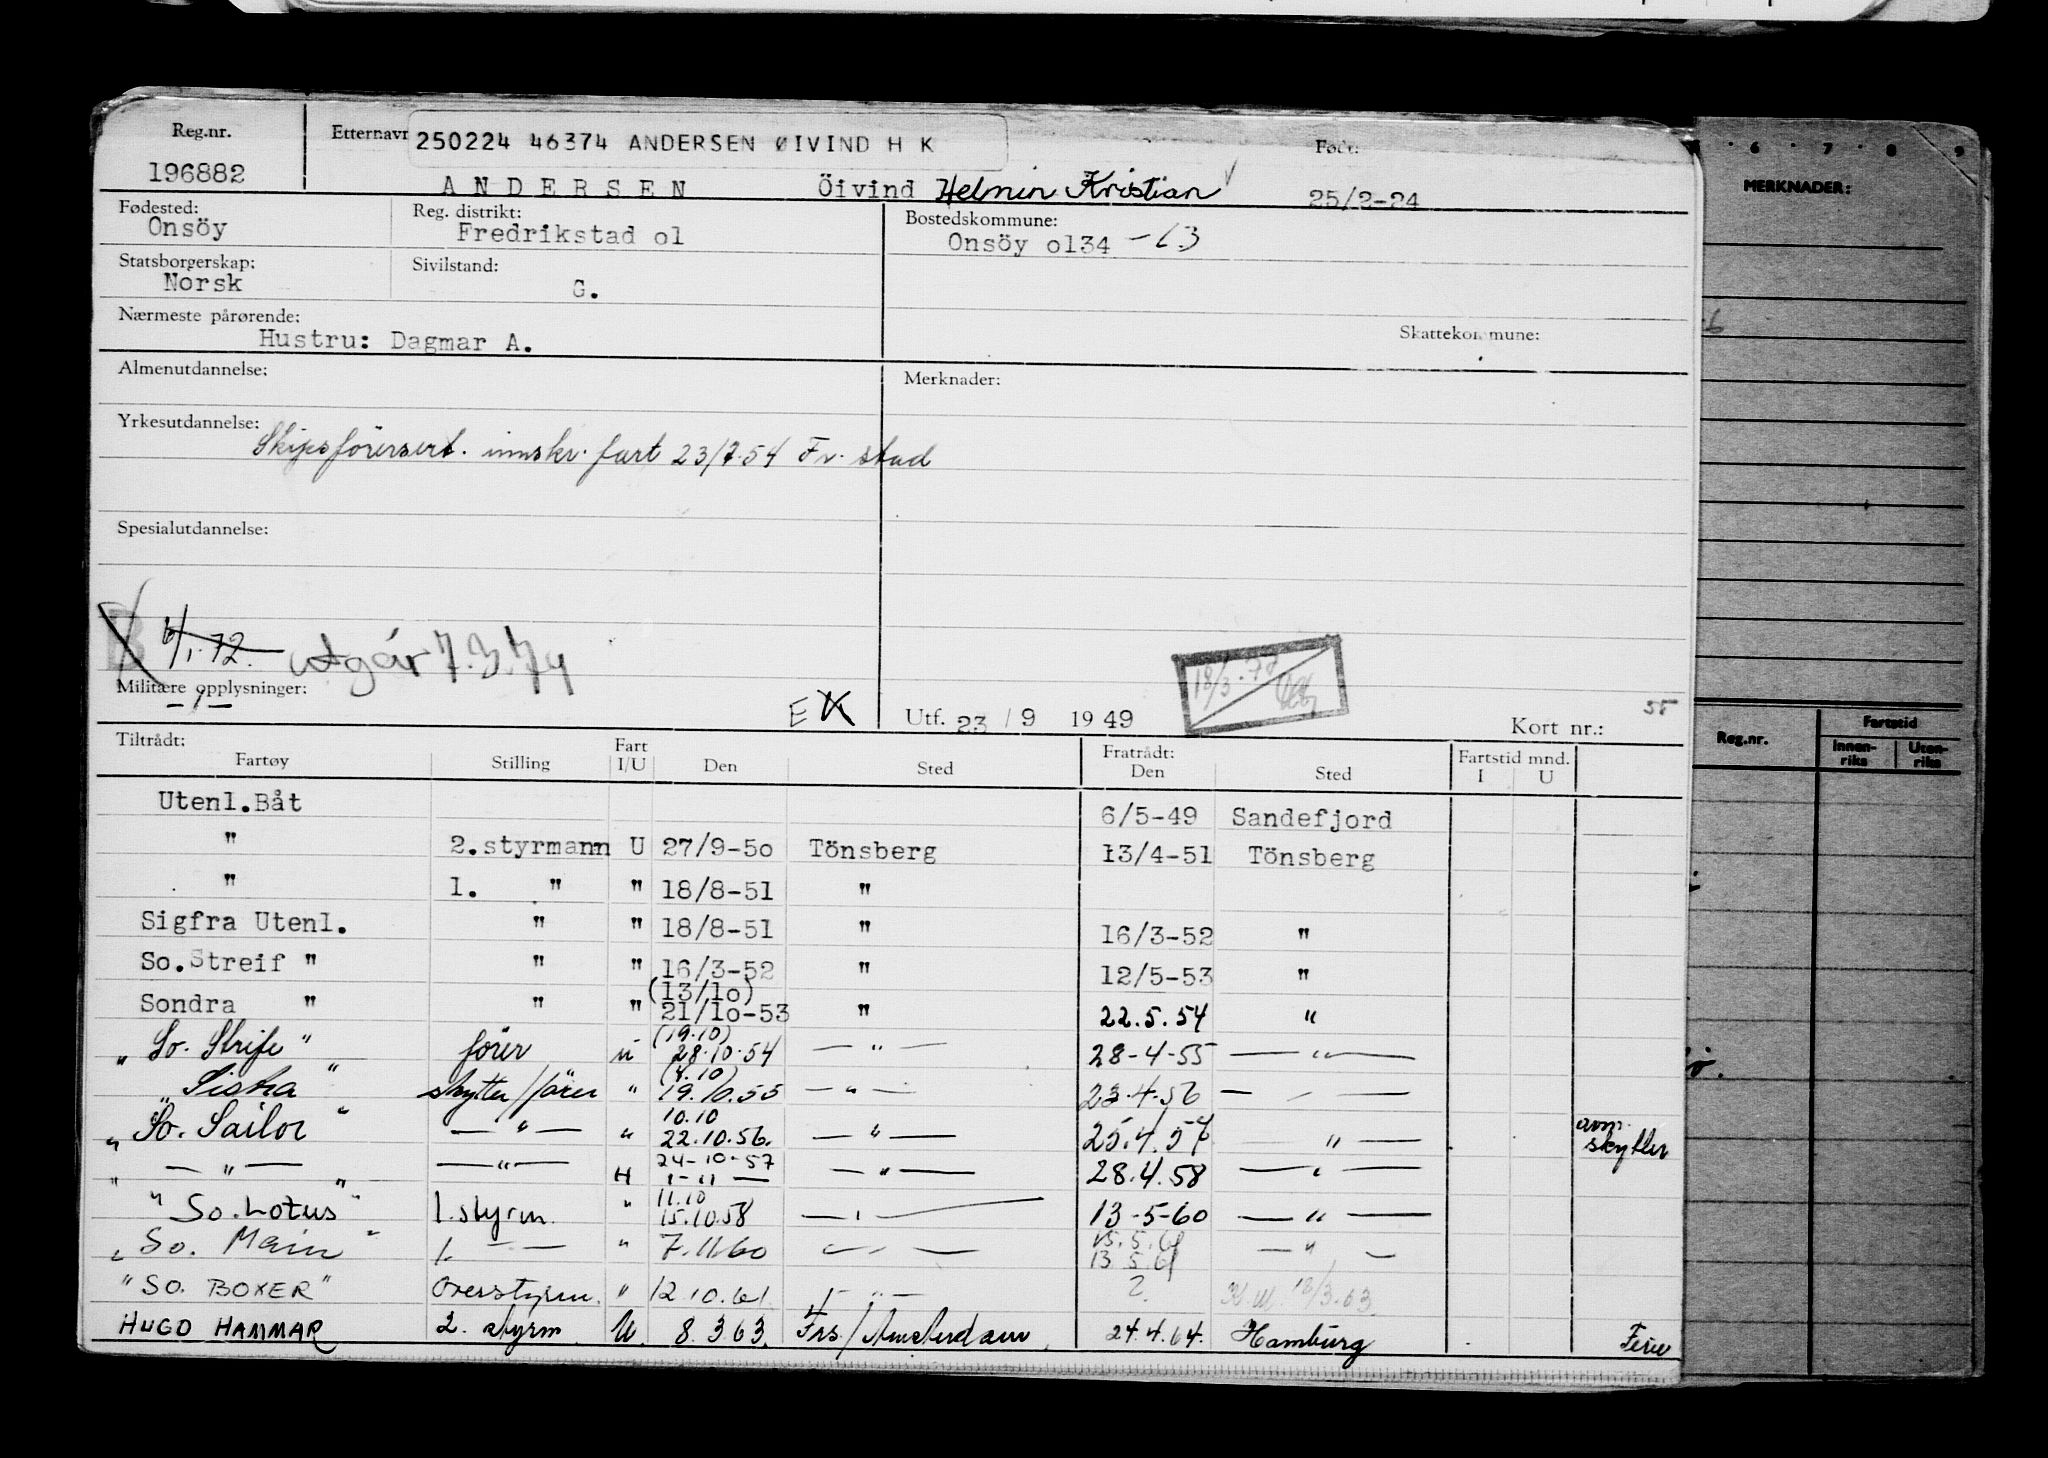 Reg.nr. Etternavn 250224 46374 ANDERSEN ØIVIND H K Født:
196882 ANDERSEN Öivind Helmin Kristian 25/2-24
Fødested: Reg. distrikt: Bostedskommune:
Onsöy Fredrikstad o1 Onsöy o134 -63
Statsborgerskap: Sivilstand:
Norsk G.
Nærmeste pårørende: Skattekommune:
Hustru: Dagmar A.
Almenutdannelse: Merknader:
Yrkesutdannelse:
Skipsförersert. innskr. fart 23/7.54 Fr. stad
Spesialutdannelse:
B 4/1.72. utgår 7.3.74
Militære opplysninger:
-/- EK Utf. 23/9 1949 Kort nr.: 55
Tiltrådt: Fart Fratrådt: Fartstid mnd.
Fartøy Stilling I/U Den Sted Den Sted I U
Utenl.Båt 6/5-49 Sandefjord
" 2.styrmann U 27/9-50 Tönsberg 13/4-51 Tönsberg
" 1. " " 18/8-51 "
Sigfra Utenl. " " 18/8-51 " 16/3-52 "
So.Streif " " " 16/3-52 " 12/5-53 "
(13/10)
Sondra " " " 21/10-53 " 22.5.54 "
(19.10)
"So. Strife" förer u 28.10.54 — " — 28-4-55 — " —
(4.10)
"Siska" skytter/förer " 19.10.55 — " — 23.4.56 — " —
10.10
"So. Sailor" — " — " 22.10.56. — " — 25.4.57 — " — avm. skytter
24-10-57
" — " — " — " — H 1-11 — — " — 28.4.58 — " —
11.10
"So. Lotus" 1.styrm. " 15.10.58 — " — 13-5-60 — " —
15.5.61
"So. Main" 1. — " — " 7.11.60 — " — 13.5.61 — " —
"SO. BOXER" Overstyrm. " 12.10.61. — " — ? 18/3.63.
HUGO HAMMAR 2. styrm U. 8.3 63. Frs./Amsterdam. 24.4.64. Hamburg Ferie
6 7 8 9
MERKNADER:
Reg.nr. Fartstid
Innen-riks Uten-riks